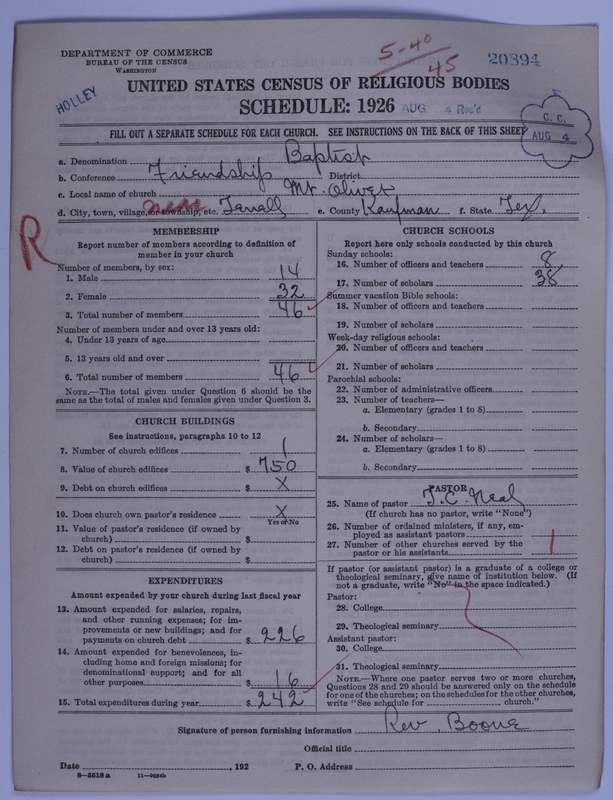 DEPARTMENT OF COMMERCE
BUREAU OF THE CENSUS
WASHINGTON
5-40
45
20894
UNITED STATES CENSUS OF RELIGIOUS BODIES
HOLLEY
SCHEDULE: 1926
AUG 4 Rec'd
C. C.
AUG 4
FILL OUT A SEPARATE SCHEDULE FOR EACH CHURCH. SEE INSTRUCTIONS ON THE BACK OF THIS SHEET
a. Denomination Baptist
b. Conference Friendship District
c. Local name of church Mt. Olivet
d. City, town, village, or township, etc. near Terrell e. County Kaufman f. State Tex.
R
MEMBERSHIP
Report number of members according to definition of member in your church
Number of members, by sex:
1. Male 14
2. Female 32
3. Total number of members 46
Number of members under and over 13 years old:
4. Under 13 years of age
5. 13 years old and over
6. Total number of members 46
NOTE.—The total given under Question 6 should be the
same as the total of males and females given under Question 3.
CHURCH BUILDINGS
See instructions, paragraphs 10 to 12
7. Number of church edifices 1
8. Value of church edifices $ 750
9. Debt on church edifices $ X
10. Does church own pastor's residence X
Yes or No
11. Value of pastor's residence (if owned by
church) $
12. Debt on pastor's residence (if owned by
church) $
EXPENDITURES
Amount expended by your church during last fiscal year
13. Amount expended for salaries, repairs,
and other running expenses; for im-
provements or new buildings; and for
payments on church debt $ 226
14. Amount expended for benevolences, in-
cluding home and foreign missions; for
denominational support; and for all
other purposes $ 16
15. Total expenditures during year $ 242
CHURCH SCHOOLS
Report here only schools conducted by this church
Sunday schools:
16. Number of officers and teachers 8
17. Number of scholars 38
Summer vacation Bible schools:
18. Number of officers and teachers
19. Number of scholars
Week-day religious schools:
20. Number of officers and teachers
21. Number of scholars
Parochial schools:
22. Number of administrative officers
23. Number of teachers—
a. Elementary (grades 1 to 8)
b. Secondary
24. Number of scholars—
a. Elementary (grades 1 to 8)
b. Secondary
PASTOR
25. Name of pastor J. C. Neal
(If church has no pastor, write "None")
26. Number of ordained ministers, if any, em-
ployed as assistant pastors
27. Number of other churches served by the
pastor or his assistants 1
If pastor (or assistant pastor) is a graduate of a college or
theological seminary, give name of institution below. (If
not a graduate, write "No" in the space indicated.)
Pastor:
28. College
29. Theological seminary
Assistant pastor:
30. College
31. Theological seminary
NOTE.—Where one pastor serves two or more churches,
Questions 28 and 29 should be answered only on the schedule
for one of the churches; on the schedules for the other churches,
write "See schedule for church."
Signature of person furnishing information Rev Boone
Official title
Date , 192 P. O. Address
8-5518a 11-9354b